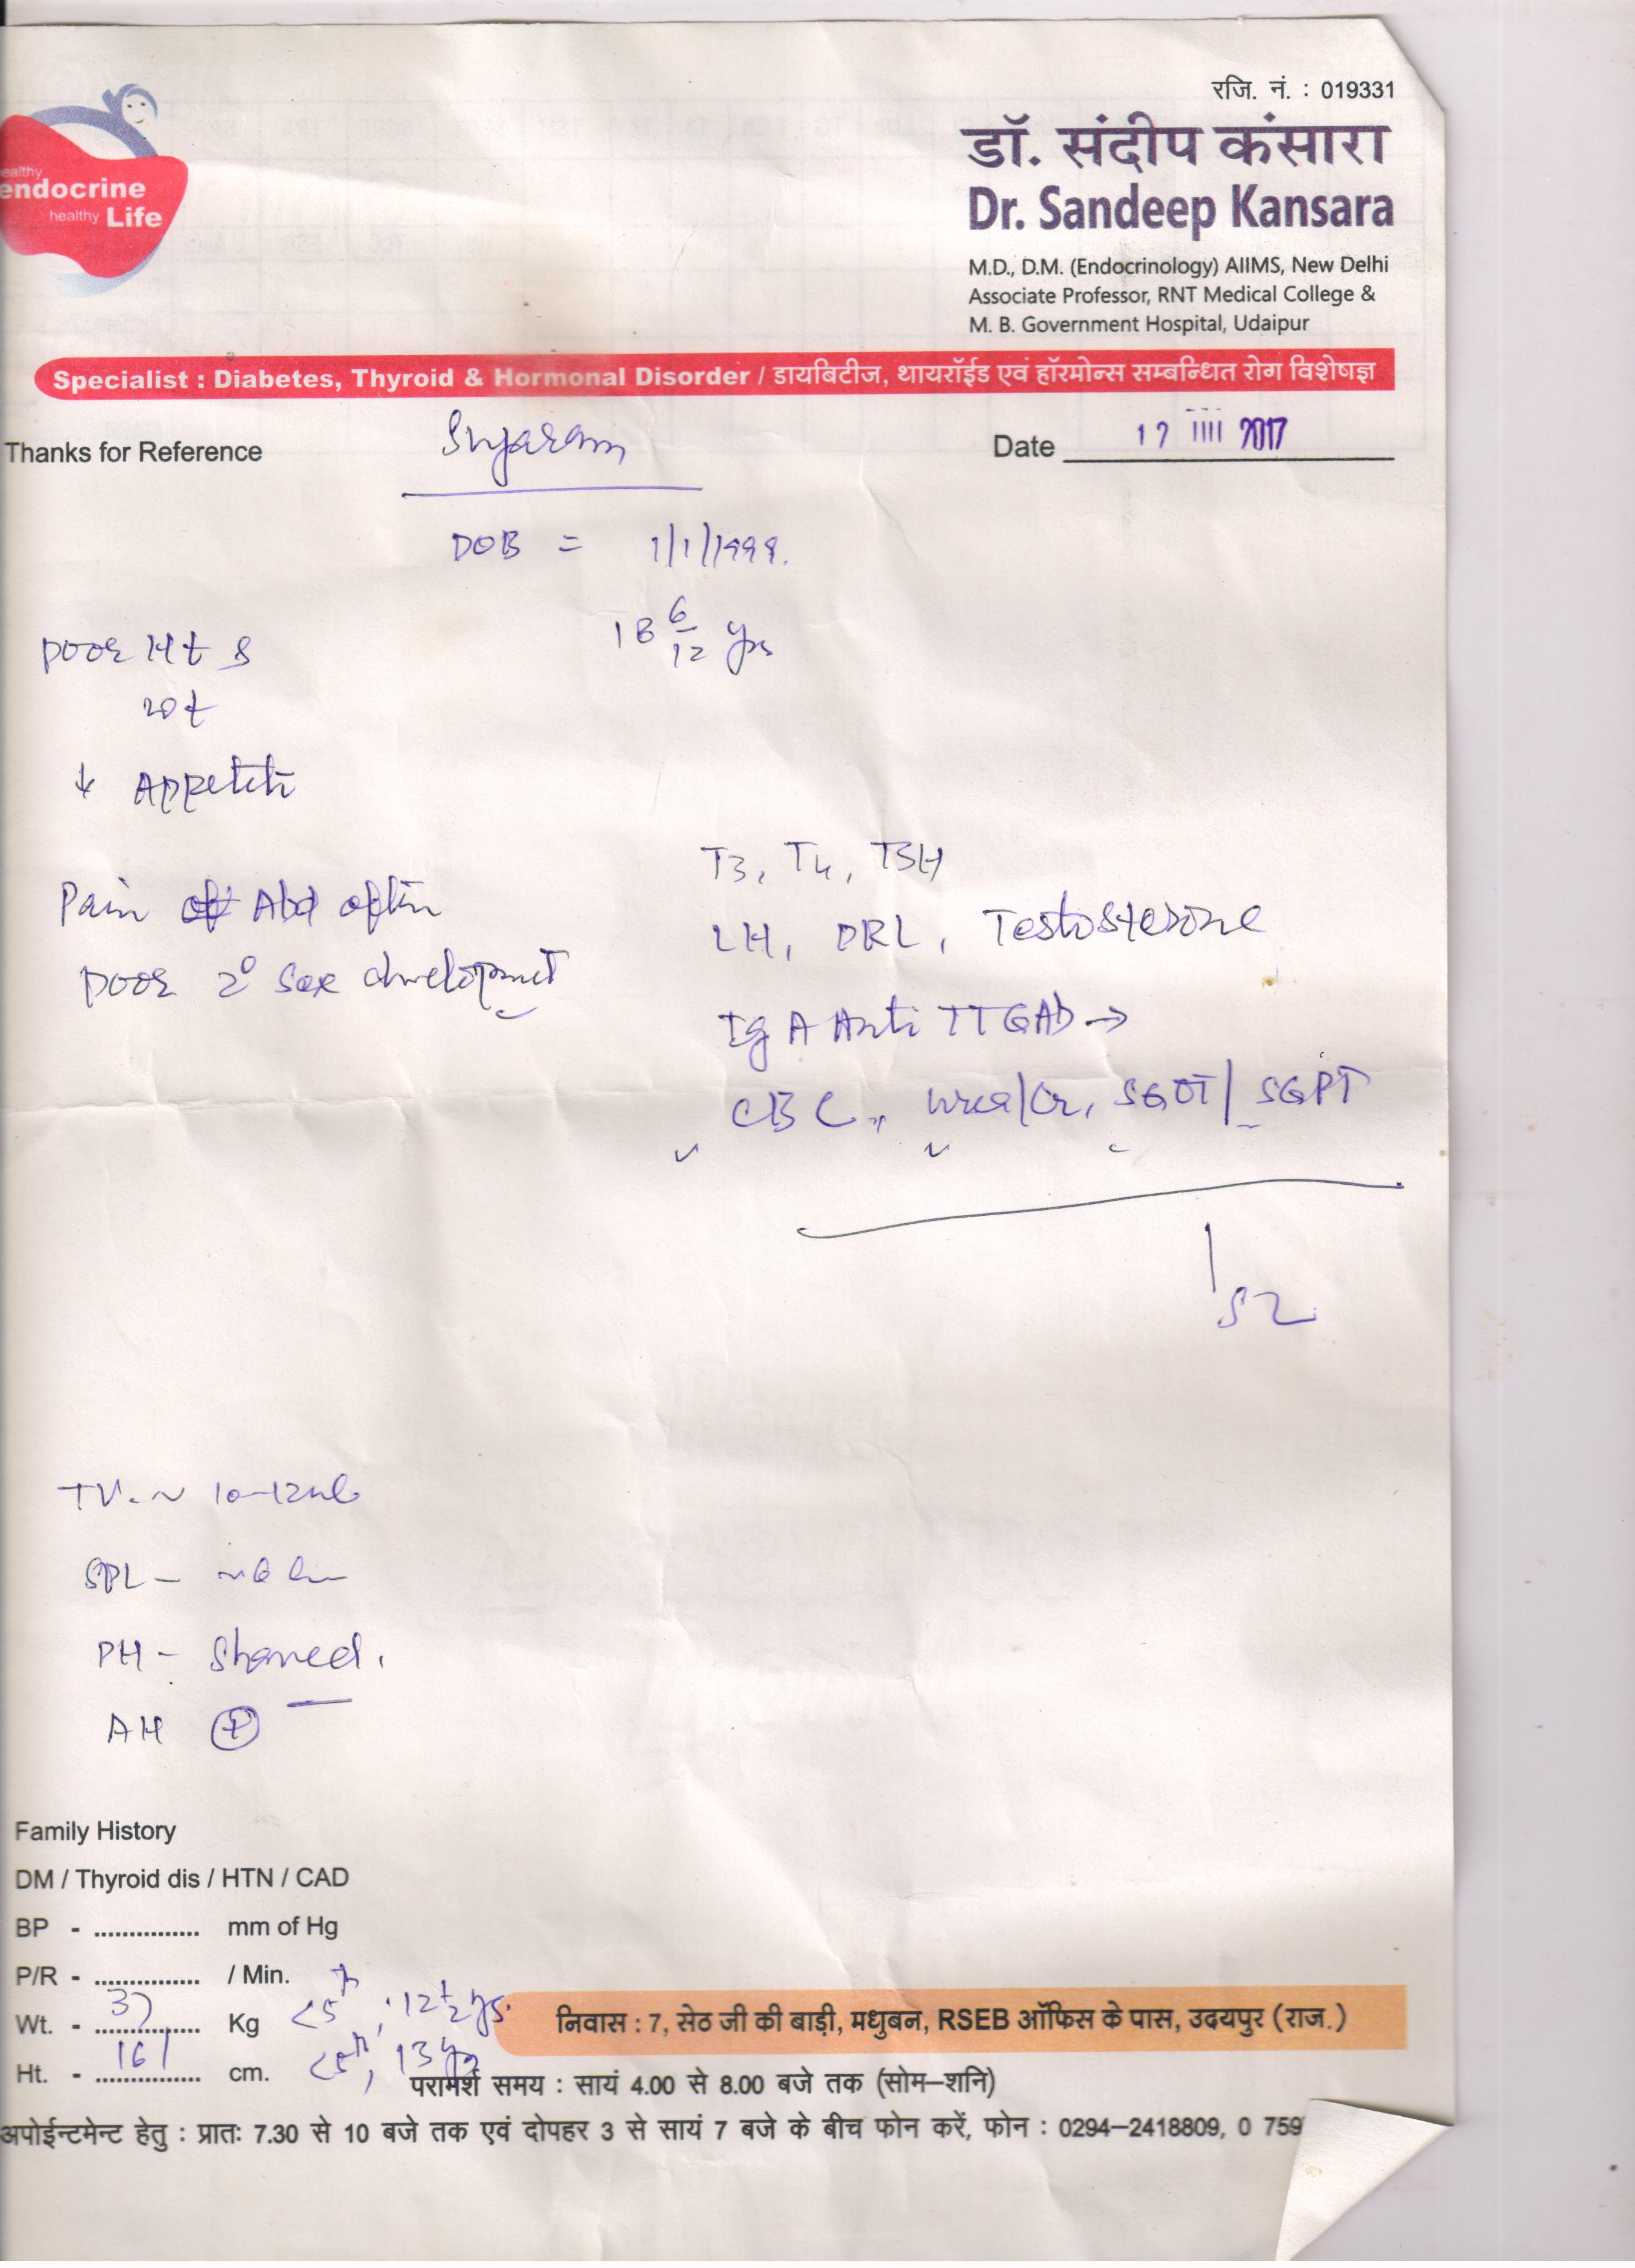 रजि. नं. : 019331
डॉ. संदीप कंसारा
Dr. Sandeep Kansara
M.D., D.M. (Endocrinology) AIIMS, New Delhi
Associate Professor, RNT Medical College &
M. B. Government Hospital, Udaipur
ealthy
endocrine
healthy Life
Specialist : Diabetes, Thyroid & Hormonal Disorder / डायबिटीज, थायरॉईड एवं हॉरमोन्स सम्बन्धित रोग विशेषज्ञ
Thanks for Reference
Date 2017
DOB = 1/1/1999.
18 6/12 yrs
Poor Ht &
wt
↓ Appetite
T3, T4, TSH
Pain Abd often
LH, PRL, Testosterone
Poor 2° Sex development
IgA Anti TTGAb →
CBC, urea/Cr, SGOT/SGPT
TV ~ 10-12ml
SPL -
PH - Shaved.
AH +
Family History
DM / Thyroid dis / HTN / CAD
BP - ............... mm of Hg
P/R - ............... / Min.
Wt. - 37 Kg <5th, 12 1/2 yrs.
निवास : 7, सेठ जी की बाड़ी, मधुबन, RSEB ऑफिस के पास, उदयपुर (राज.)
Ht. - 161 cm. <5th, 13 yrs
परामर्श समय : सायं 4.00 से 8.00 बजे तक (सोम–शनि)
अपोईन्टमेन्ट हेतु : प्रातः 7.30 से 10 बजे तक एवं दोपहर 3 से सायं 7 बजे के बीच फोन करें, फोन : 0294–2418809, 0 759